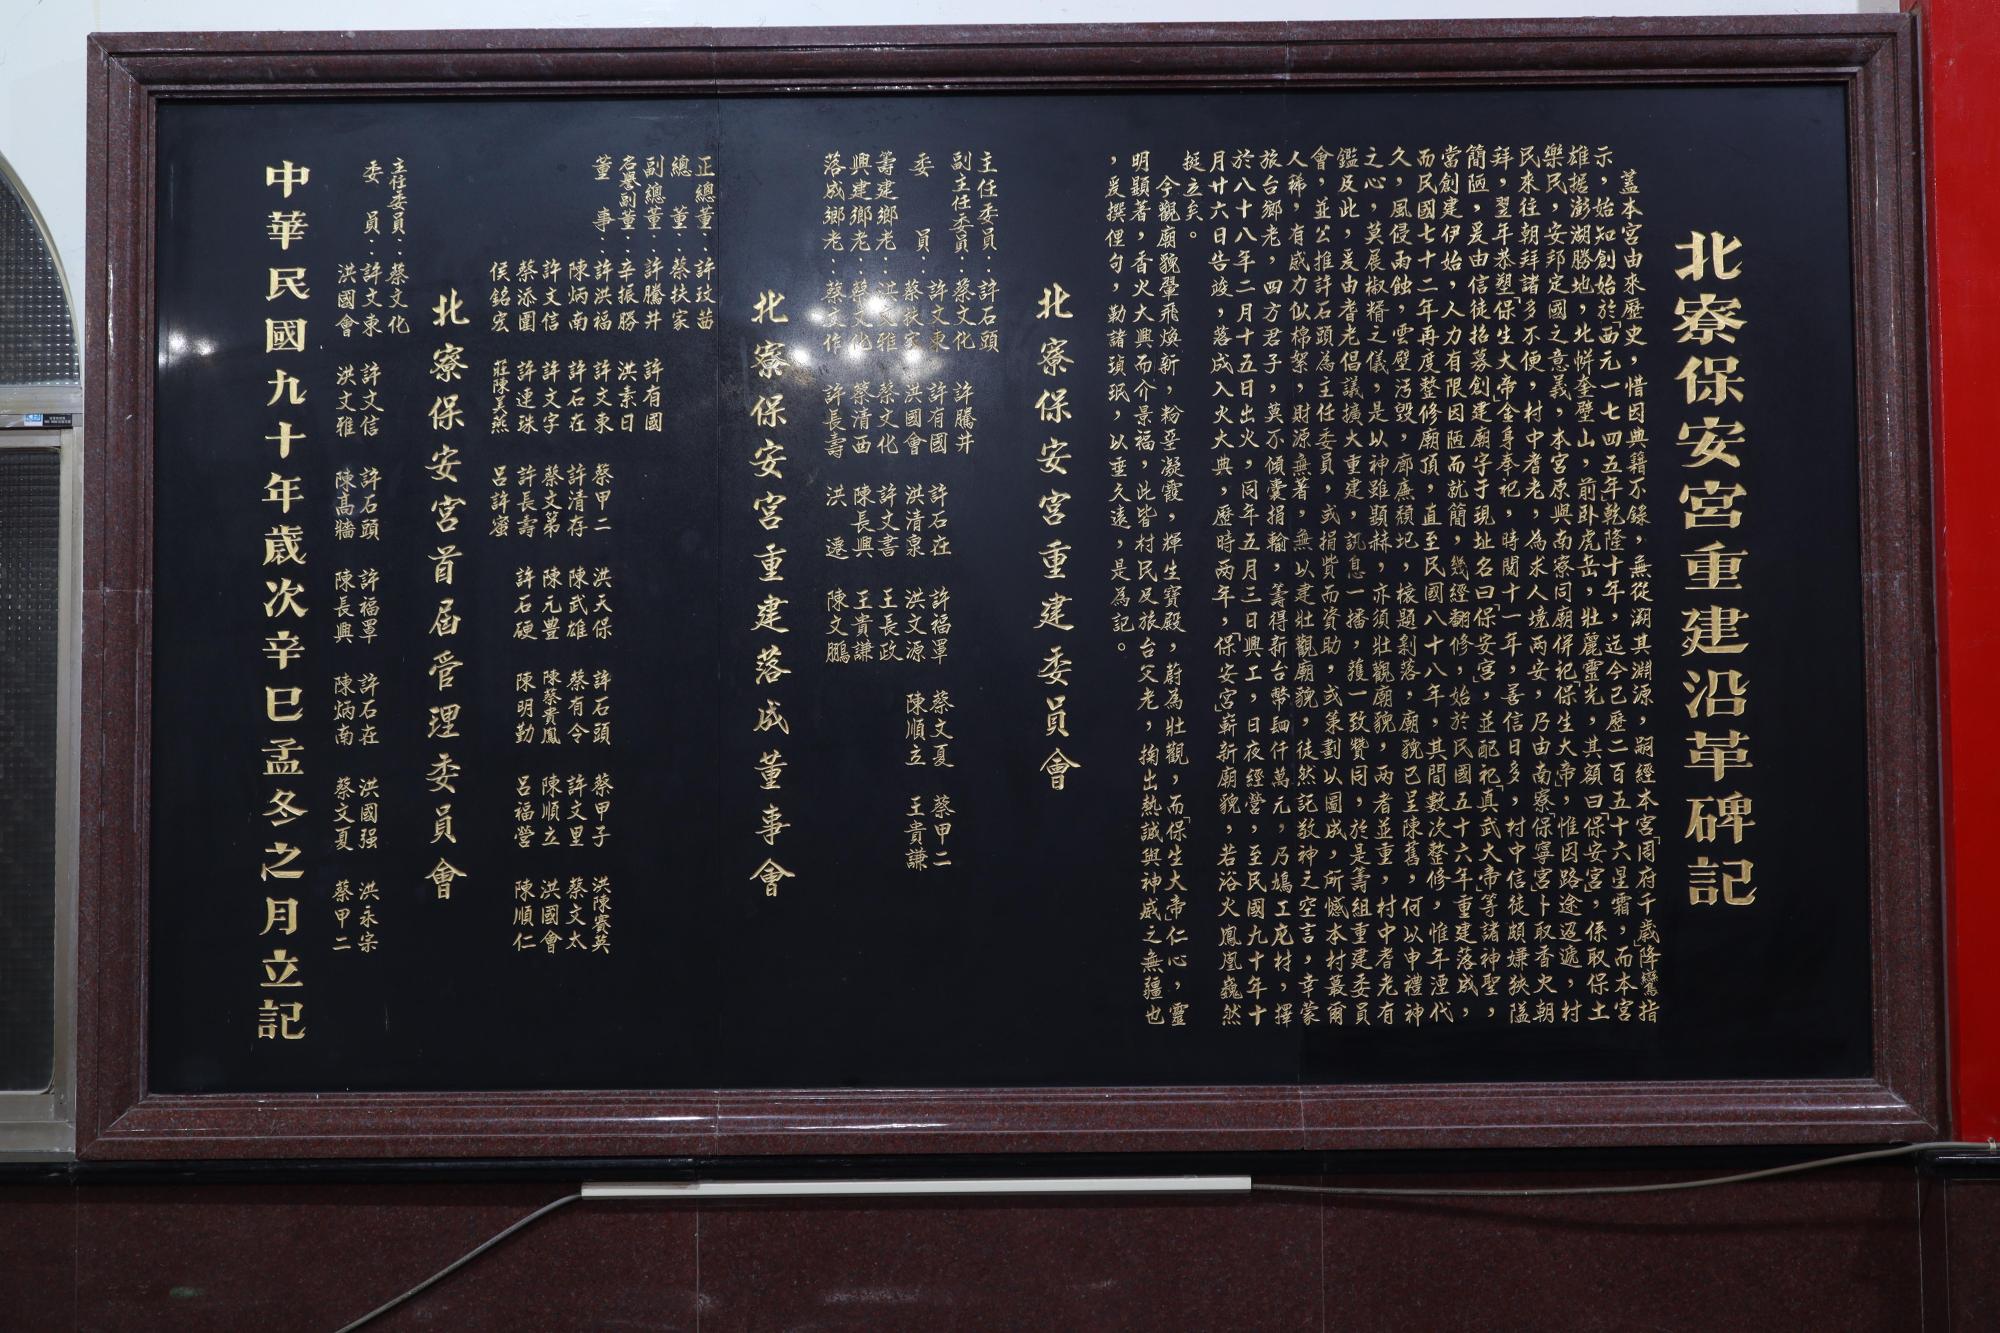 北寮保安宮重建沿革碑記
蓋本宮由來歷史，惜因典籍不錄，無從溯其淵源，嗣經本宮「周府千歲」降鸞指
示，始知創始於「西元一七四五年乾隆十年，迄今已歷二百五十六星霜，而本宮
雄據澎湖勝地，北帡奎壁山，前卧虎岳，壯麗靈光，其額曰「保安宮」，係取保土
樂民，安邦定國之意義，本宮原與南寮同廟併祀「保生大帝」，惟因路途迢遞，村
民來往朝拜諸多不便，村中耆老，為求人境兩安，乃由南寮「保寧宮」卜取香火朝
拜，翌年恭塑「保生大帝」金身奉祀，時閱十一年，善信日多，村中信徒頗嫌狹隘
簡陋，爰由信徒招募創建廟宇于現址名曰「保安宮」，並配祀「真武大帝」等諸神聖，
當創建伊始，人力有限因陋而就簡，幾經翻修，始於民國五十六年重建落成，
而民國七十二年再度整修廟頂，直至民國八十八年，其間數次整修，惟年湮代
久，風侵雨蝕，雲壁污毀，廊廡頹圮，榱題剝落，廟貌已呈陳舊，何以申禮神
之心，莫展椒糈之儀，是以神雖顯赫，亦須壯觀廟貌，兩者並重，村中耆老有
鑑及此，爰由耆老倡議擴大重建，訊息一播，獲一致贊同，於是籌組重建委員
會，並公推許石頭為主任委員，或捐貲而資助，或策劃以圖成，所憾本村蕞爾
人稀，有感力似棉絮，財源無著，無以建壯觀廟貌，徒然記敬神之空言，幸蒙
旅台鄉老，四方君子，莫不傾囊捐輸，籌得新台幣肆仟萬元，乃鳩工庀材，擇
於八十八年二月十五日出火，同年五月三日興工，日夜經營，至民國九十年十
月廿六日告竣，落成入火大典，歷時兩年，「保安宮」嶄新廟貌，若浴火鳳凰巍然
挺立矣。
今觀廟貌翬飛煥新，粉堊凝霞，輝生寶殿，蔚為壯觀，而「保生大帝」仁心，靈
明顯著，香火大興而介景福，此皆村民及旅台父老，掬出熱誠與神威之無疆也
，爰撰俚句，勒諸瑱珉，以垂久遠，是為記。
北寮保安宮重建委員會
主任委員：許石頭
副主任委員：蔡文化 許騰井
許文東 許有國 許石在 許福罩 蔡文夏 蔡甲二
委員：蔡扶家 洪國會 洪清泉 洪文源 陳順立 王貴謙
籌建鄉老：洪文雅 蔡文化 許文書 王長政
興建鄉老：蔡文化 蔡清西 陳長興 王貴謙
落成鄉老：蔡文作 許長壽 洪遷 陳文鵬
北寮保安宮重建落成董事會
正總董：許玟茁
總董：蔡扶家
副總董：許騰井 許有國
名譽副董：辛振勝 洪素日
董事：許洪福 許文東 蔡甲二 洪天保 許石頭 蔡甲子 洪陳賽英
陳炳南 許石在 許清存 陳武雄 蔡有令 許文里 蔡文太
許文信 許文字 蔡文第 陳元豊 陳蔡貴鳳 陳順立 洪國會
蔡添圍 許連珠 許長壽 許石硬 陳明勤 呂福營 陳順仁
侯銘宏 莊陳美燕 呂許蜜
北寮保安宮首屆管理委員會
主任委員：蔡文化
委員：許文東 許文信 許石頭 許福罩 許石在 洪國强 洪永宗
洪國會 洪文雅 陳高牆 陳長興 陳炳南 蔡文夏 蔡甲二
中華民國九十年歲次辛巳孟冬之月立記